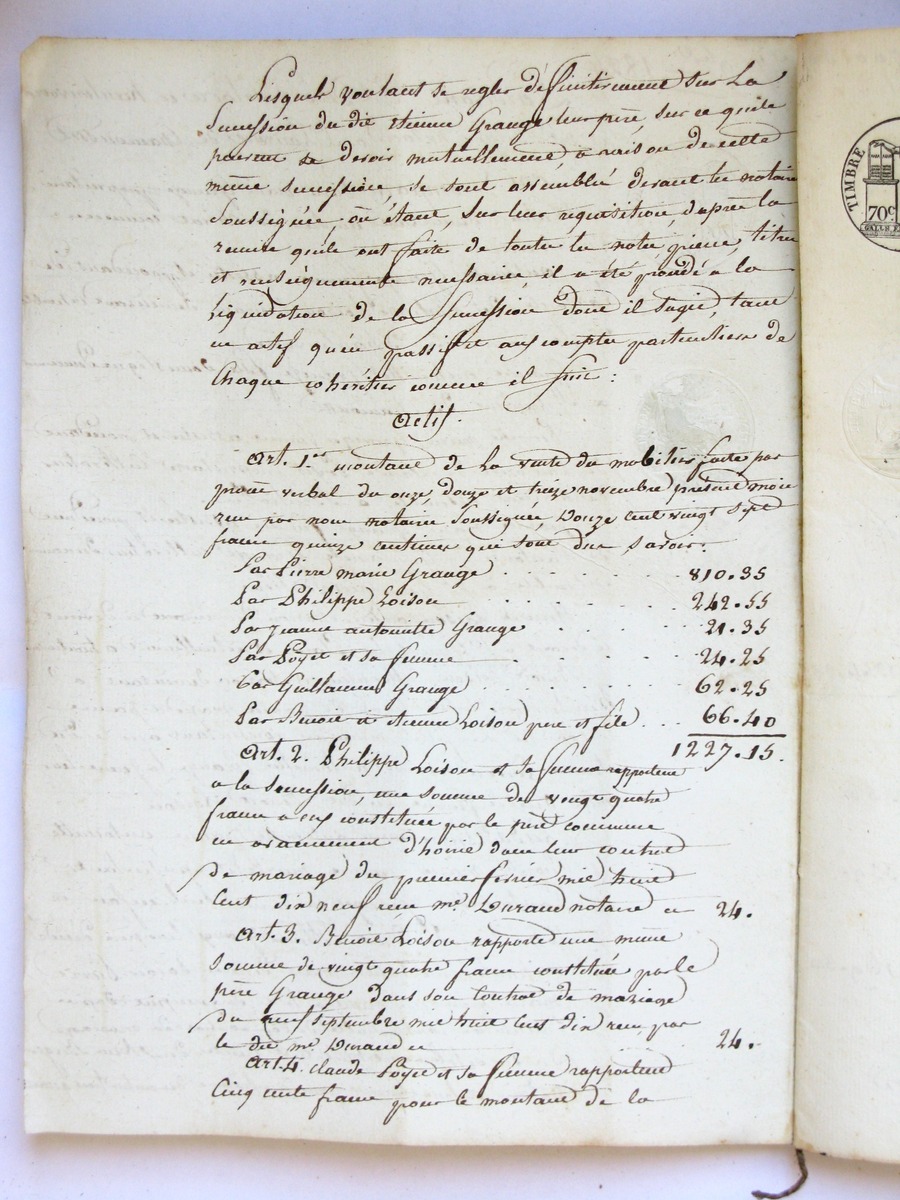 Lesquels voulant se regler définitivement sur la
succession du dit etienne Grange leur père, sur ce quils
peuvent se devoir mutuellement, a raison de cette
même succession, se sont assemblés devant les notaires
soussignés où étant, sur leur réquisition, daprès la
remise quils ont faite de toutes les notes, pièces, titres
et renseignements necessaires, il a été procédé a la
liquidation de la succession dont il sagit, tant
en actif qu'en passif et aux comptes particuliers de
chaque cohéritier comme il suit :
Actif.
Art. 1er montant de la vente du mobilier faite par
procès verbal du onze, douze et treize novembre présent mois
reçu par nous notaires soussignés, Douze cent vingt sept
francs quinze centimes qui sont dus savoir :
Par Pierre marie Grange . . . . . 810.35
Par Philippe Loison . . . . . 242.55
Par Jeanne antoinette Grange . . . . 21.35
Par Poyet et sa femme . . . . . 24.25
Par Guillaume Grange . . . . . 62.25
Par Benoit et etienne Loison pere et fils . . 66.40
1227.15.
Art. 2. Philippe Loison et sa femme rapportent
a la succession, une somme de vingt quatre
francs a eux constituée par le père commun
en avancement d'hoirie dans leur contrat
de mariage du premier fevrier mil huit
cent dix neuf reçu me. Durand notaire ci 24.
Art. 3. Benoit Loison rapporte une même
somme de vingt quatre francs constituée par le
père Grange dans son contrat de mariage
du neuf septembre mil huit cent dix reçu par
le dit me. Durand ci 24.
Art. 4. claude Poyet et sa femme rapportent
cinq cents francs pour le montant de la
TIMBRE
70c